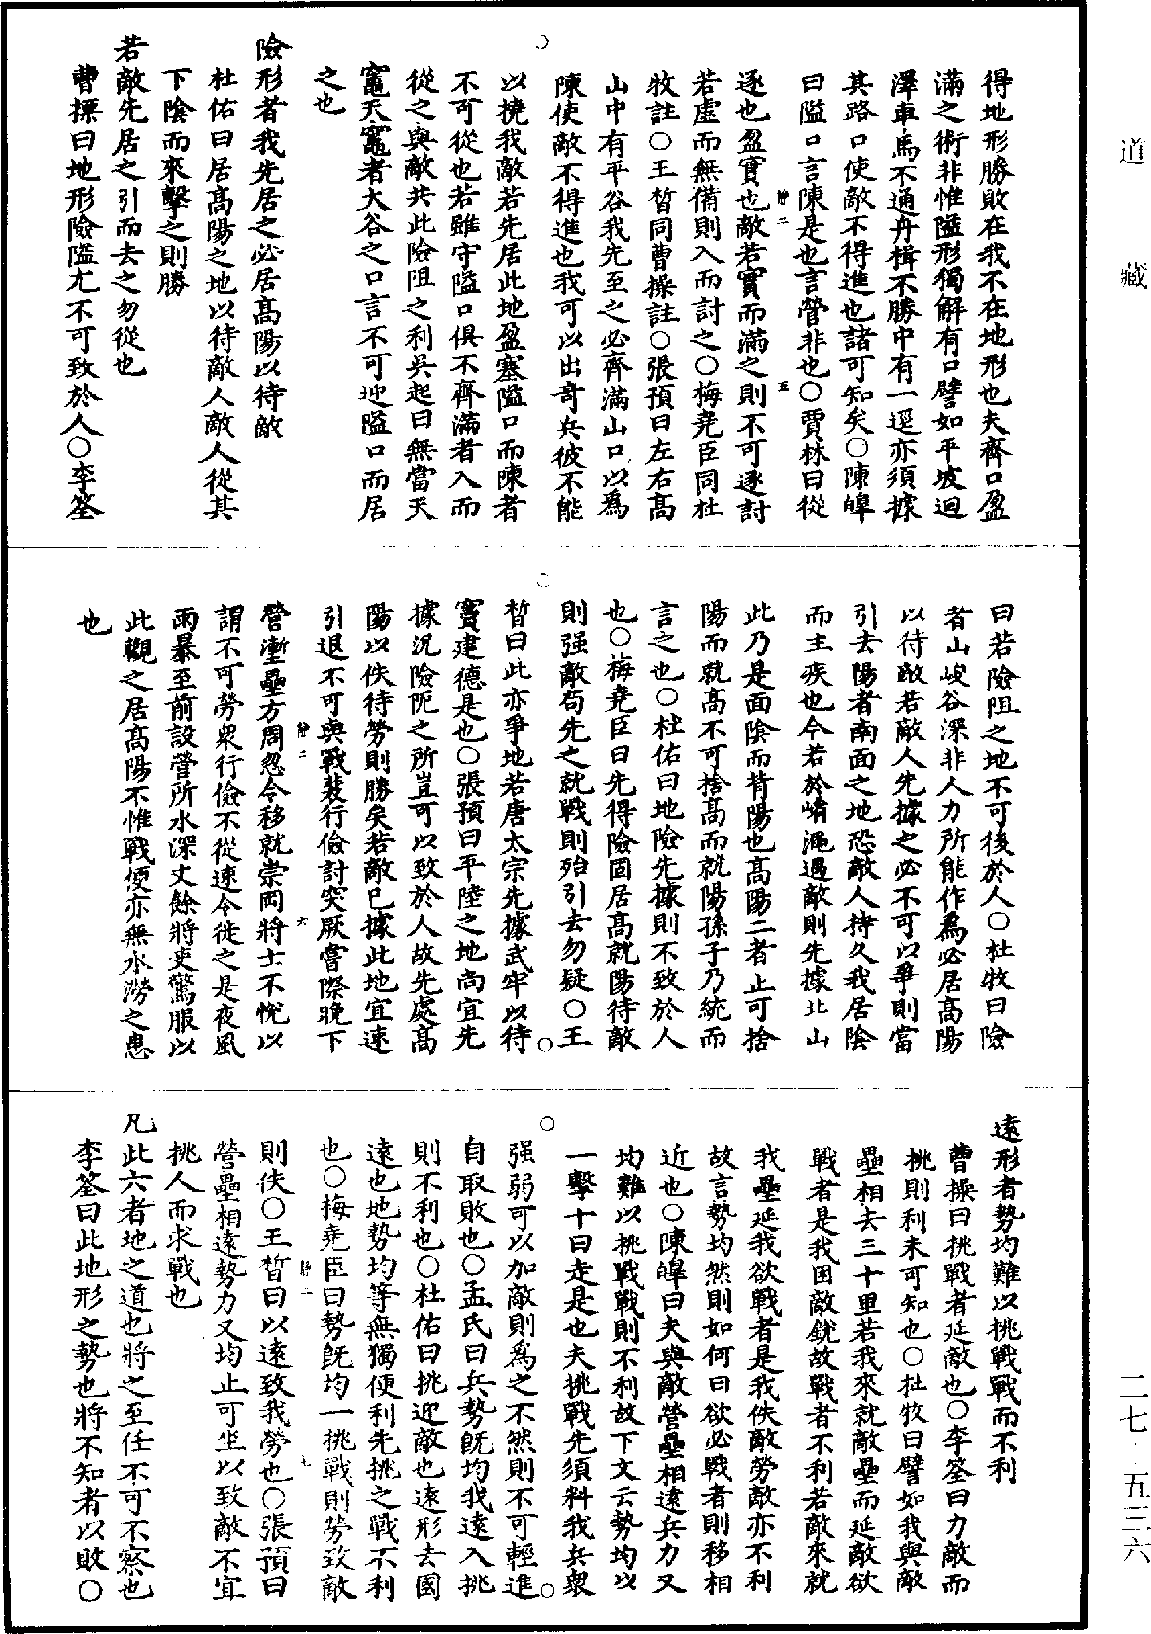 得地形勝敗在我不在地形也夫齊口盈
滿之術非惟隘形獨解有口譬如平坡迴
澤車馬不通舟楫不勝中有一逕亦須據
其路口使敵不得進也諸可知矣○陳皥
曰隘口言陳是也言營非也○賈林曰從
逐也盈實也敵若實而滿之則不可逐討
若虛而無備則入而討之○梅堯臣同杜
牧註○王晳同曹操註○張預曰左右高
山中有平谷我先至之必齊滿山口以爲
陳使敵不得進也我可以出奇兵彼不能
以撓我敵若先居此地盈塞隘口而陳者
不可從也若雖守隘口俱不齊滿者入而
從之與敵共此險阻之利吳起曰無當天
竈天竈者大谷之口言不可迎隘口而居
之也
險形者我先居之必居高陽以待敵
杜佑曰居高陽之地以待敵人敵人從其
下陰而來擊之則勝
若敵先居之引而去之勿從也
曹操曰地形險隘尤不可致於人○李筌
曰若險阻之地不可後於人○杜牧曰險
者山峻谷深非人力所能作爲必居高陽
以待敵若敵人先據之必不可以爭則當
引去陽者南面之地恐敵人持久我居陰
而生疾也今若於崤澠遇敵則先據北山
此乃是面陰而背陽也高陽二者止可捨
陽而就高不可捨高而就陽孫子乃統而
言之也○杜佑曰地險先據則不致於人
也○梅堯臣曰先得險固居高就陽待敵
則强敵苟先之就戰則殆引去勿疑○王
晳曰此亦爭地若唐太宗先據武牢以待
竇建德是也○張預曰平陸之地尚宜先
據況險阨之所豈可以致於人故先處高
陽以佚待勞則勝矣若敵已據此地宜速
引退不可與戰裴行儉討突厥嘗際晚下
營塹壘方周忽令移就崇岡將士不悅以
謂不可勞衆行儉不從速令徙之是夜風
雨暴至前設營所水深丈餘將吏驚服以
此觀之居高陽不惟戰便亦無水澇之患
也
遠形者勢均難以挑戰戰而不利
曹操曰挑戰者延敵也○李筌曰力敵而
挑則利未可知也○杜牧曰譬如我與敵
壘相去三十里若我來就敵壘而延敵欲
戰者是我困敵銳故戰者不利若敵來就
我壘延我欲戰者是我佚敵勞敵亦不利
故言勢均然則如何曰欲必戰者則移相
近也○陳皥曰夫與敵營壘相遠兵力又
均難以挑戰戰則不利故下文云勢均以
一擊十曰走是也夫挑戰先須料我兵衆
强弱可以加敵則爲之不然則不可輕進
自取敗也○孟氏曰兵勢旣均我遠入挑
則不利也○杜佑曰挑迎敵也遠形去國
遠也地勢均等無獨便利先挑之戰不利
也○梅堯臣曰勢旣均一挑戰則勞致敵
則佚○王晳曰以遠致我勞也○張預曰
營壘相遠勢力又均止可坐以致敵不宜
挑人而求戰也
凡此六者地之道也將之至任不可不察也
李筌曰此地形之勢也將不知者以敗○
靜二
五
靜二
六
靜二
七
道藏
二七·五三六